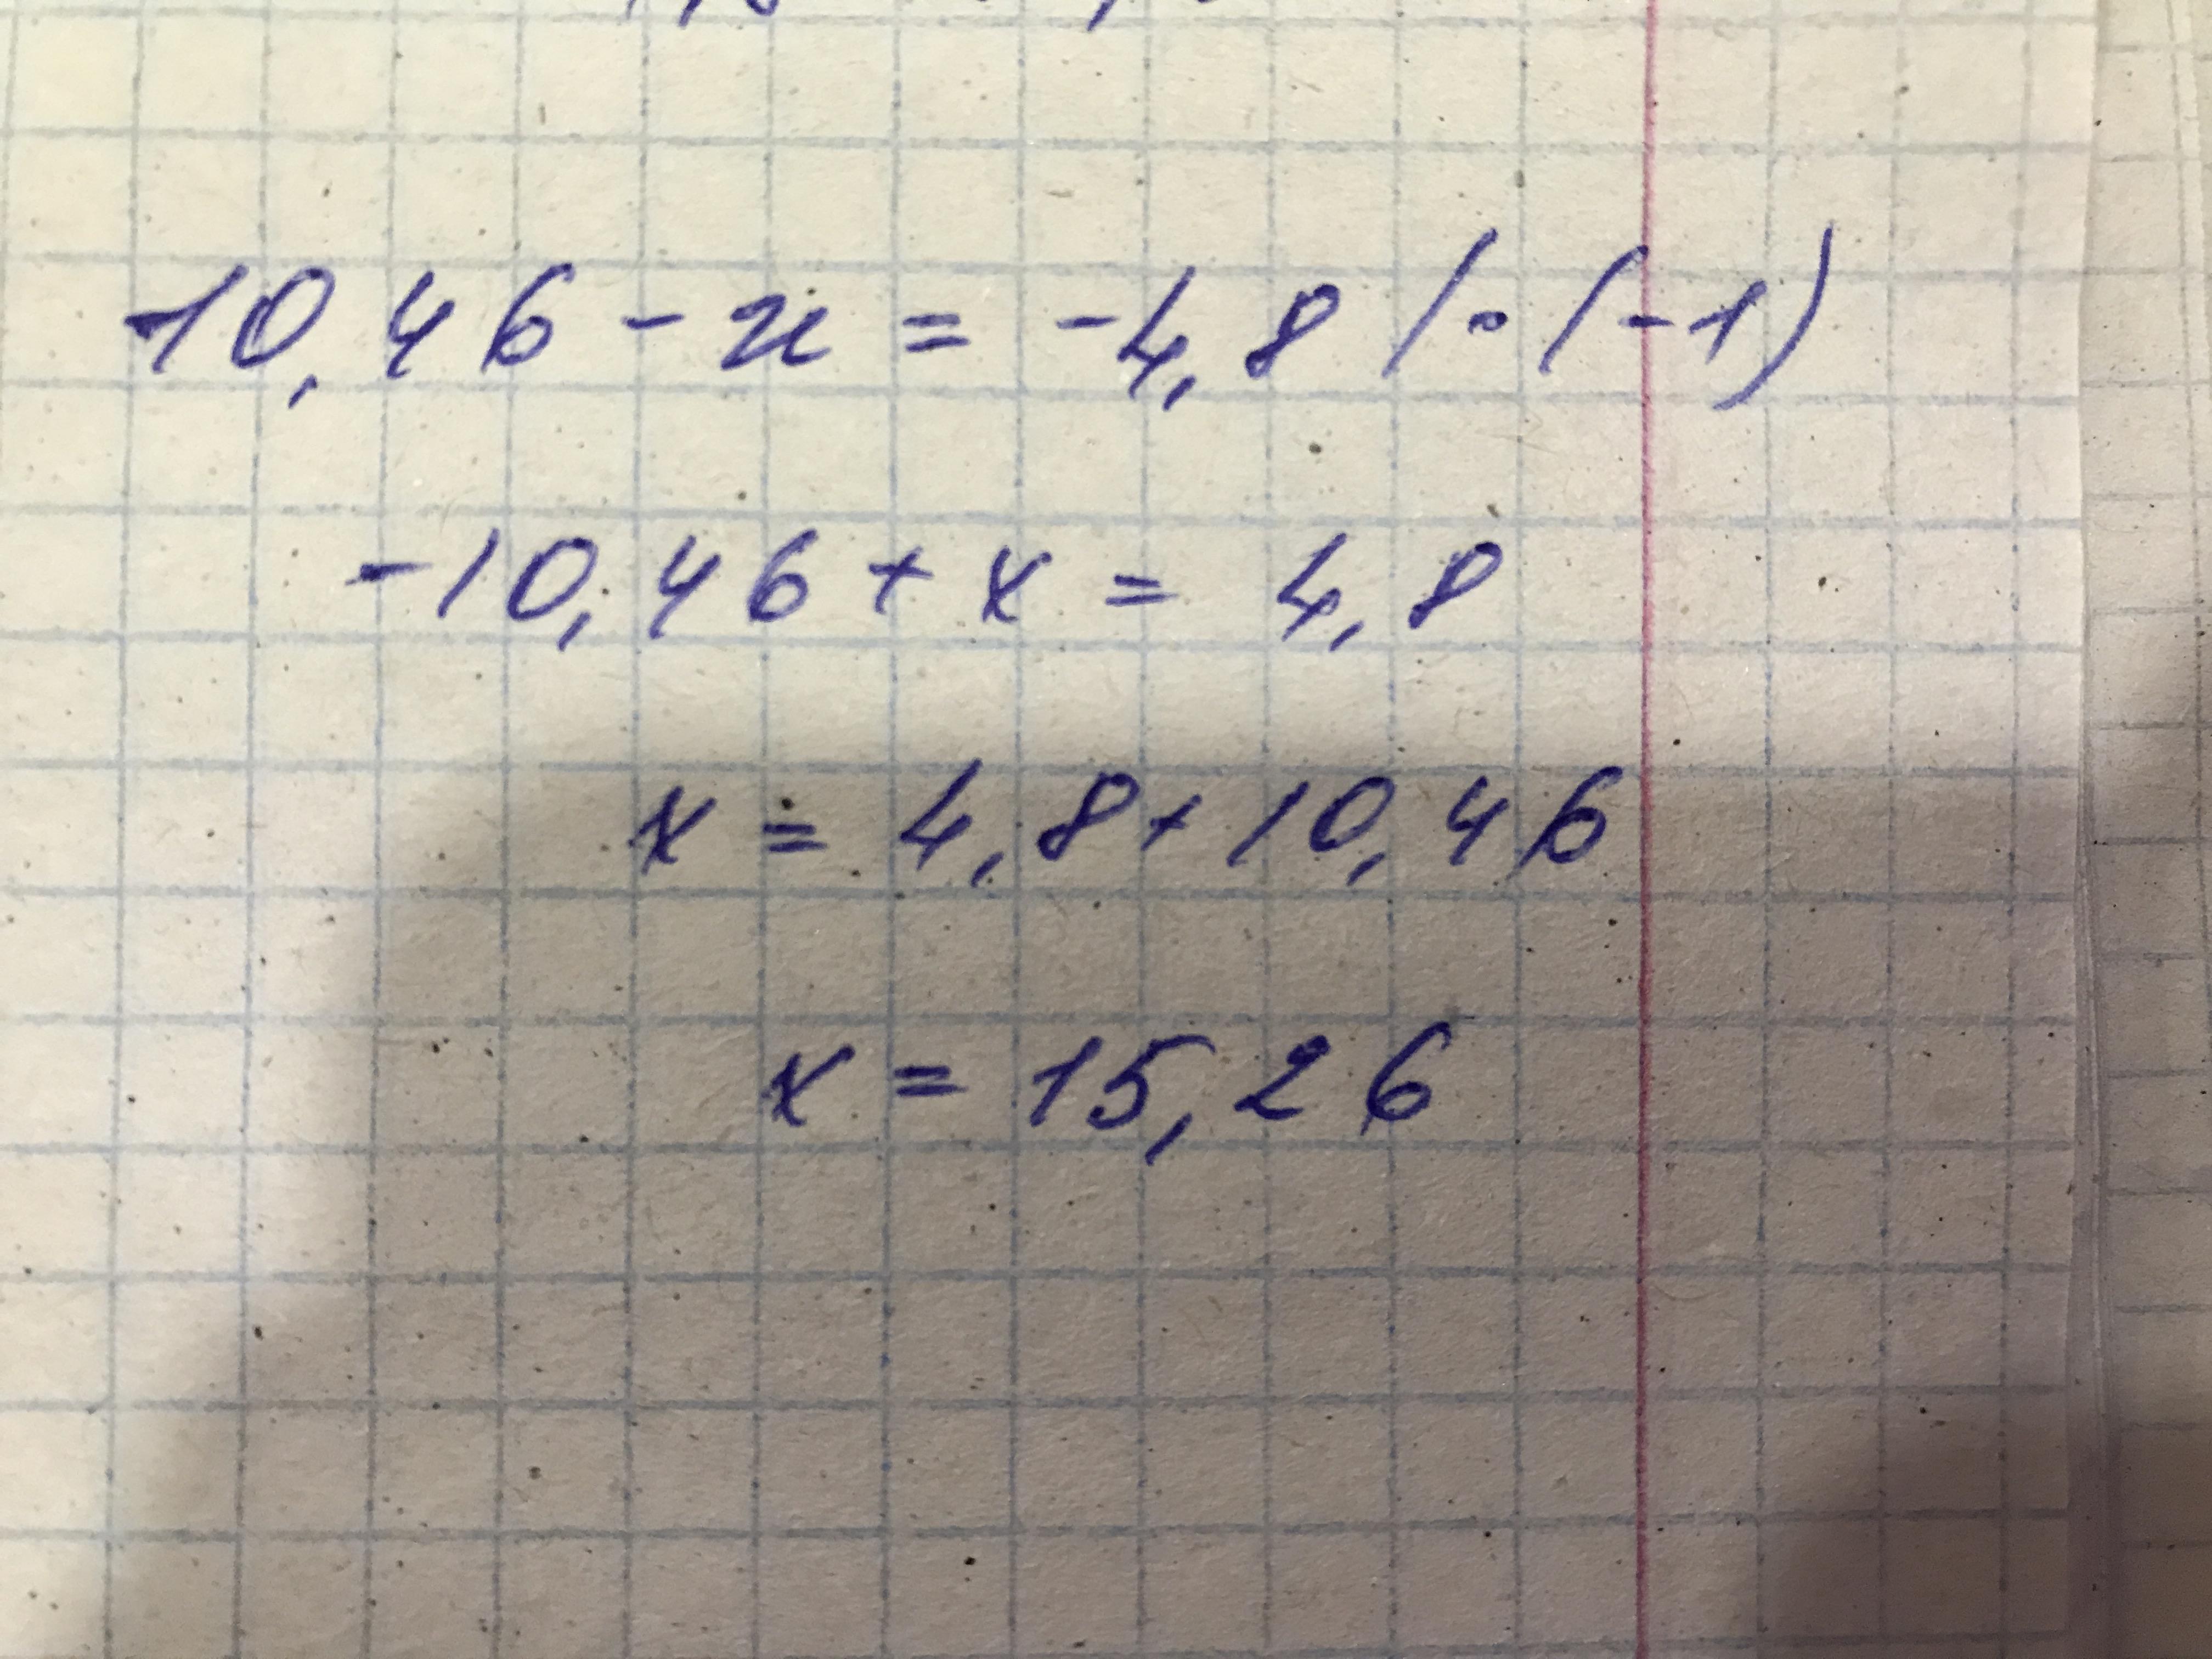 10,46 - x = -4,8 / · (-1)
-10,46 + x = 4,8
x = 4,8 + 10,46
x = 15,26